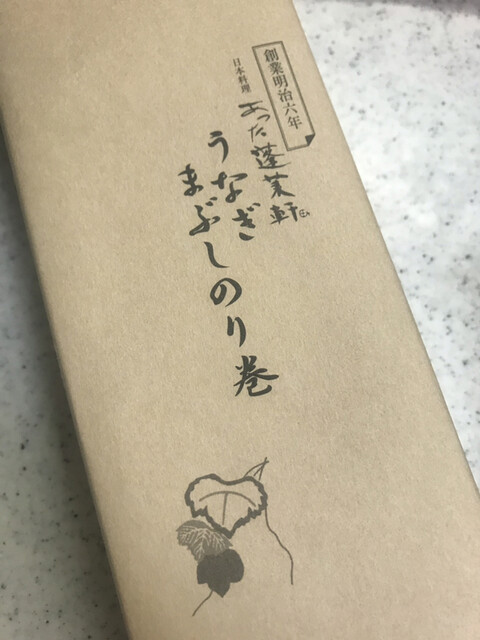 創業明治六年
日本料理
あつた蓬莱軒
うなぎ
まぶしのり巻